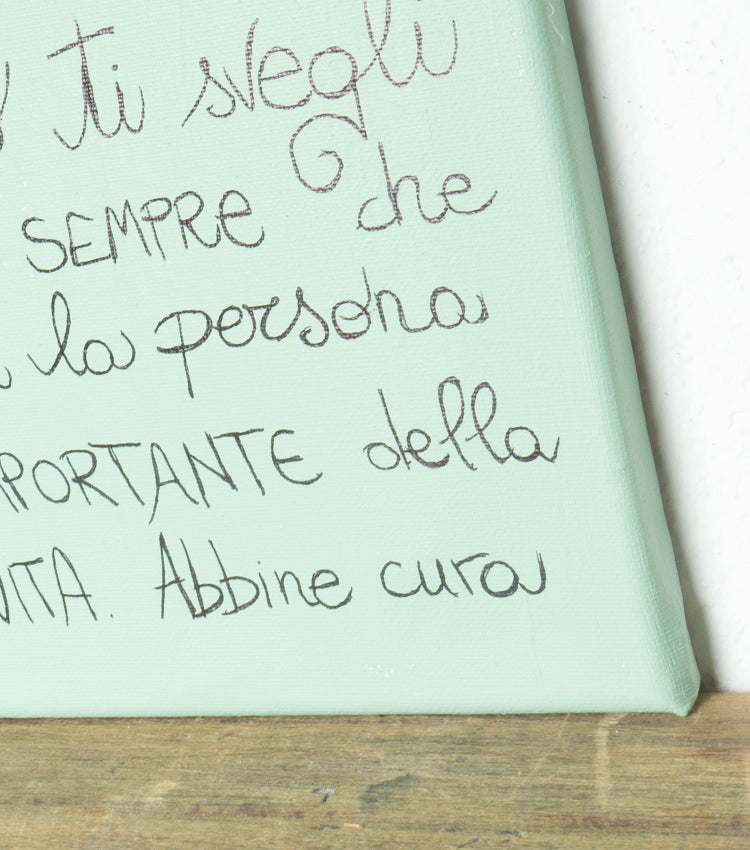 ti svegli
SEMPRE che
la persona
PORTANTE della
VITA. Abbine cura